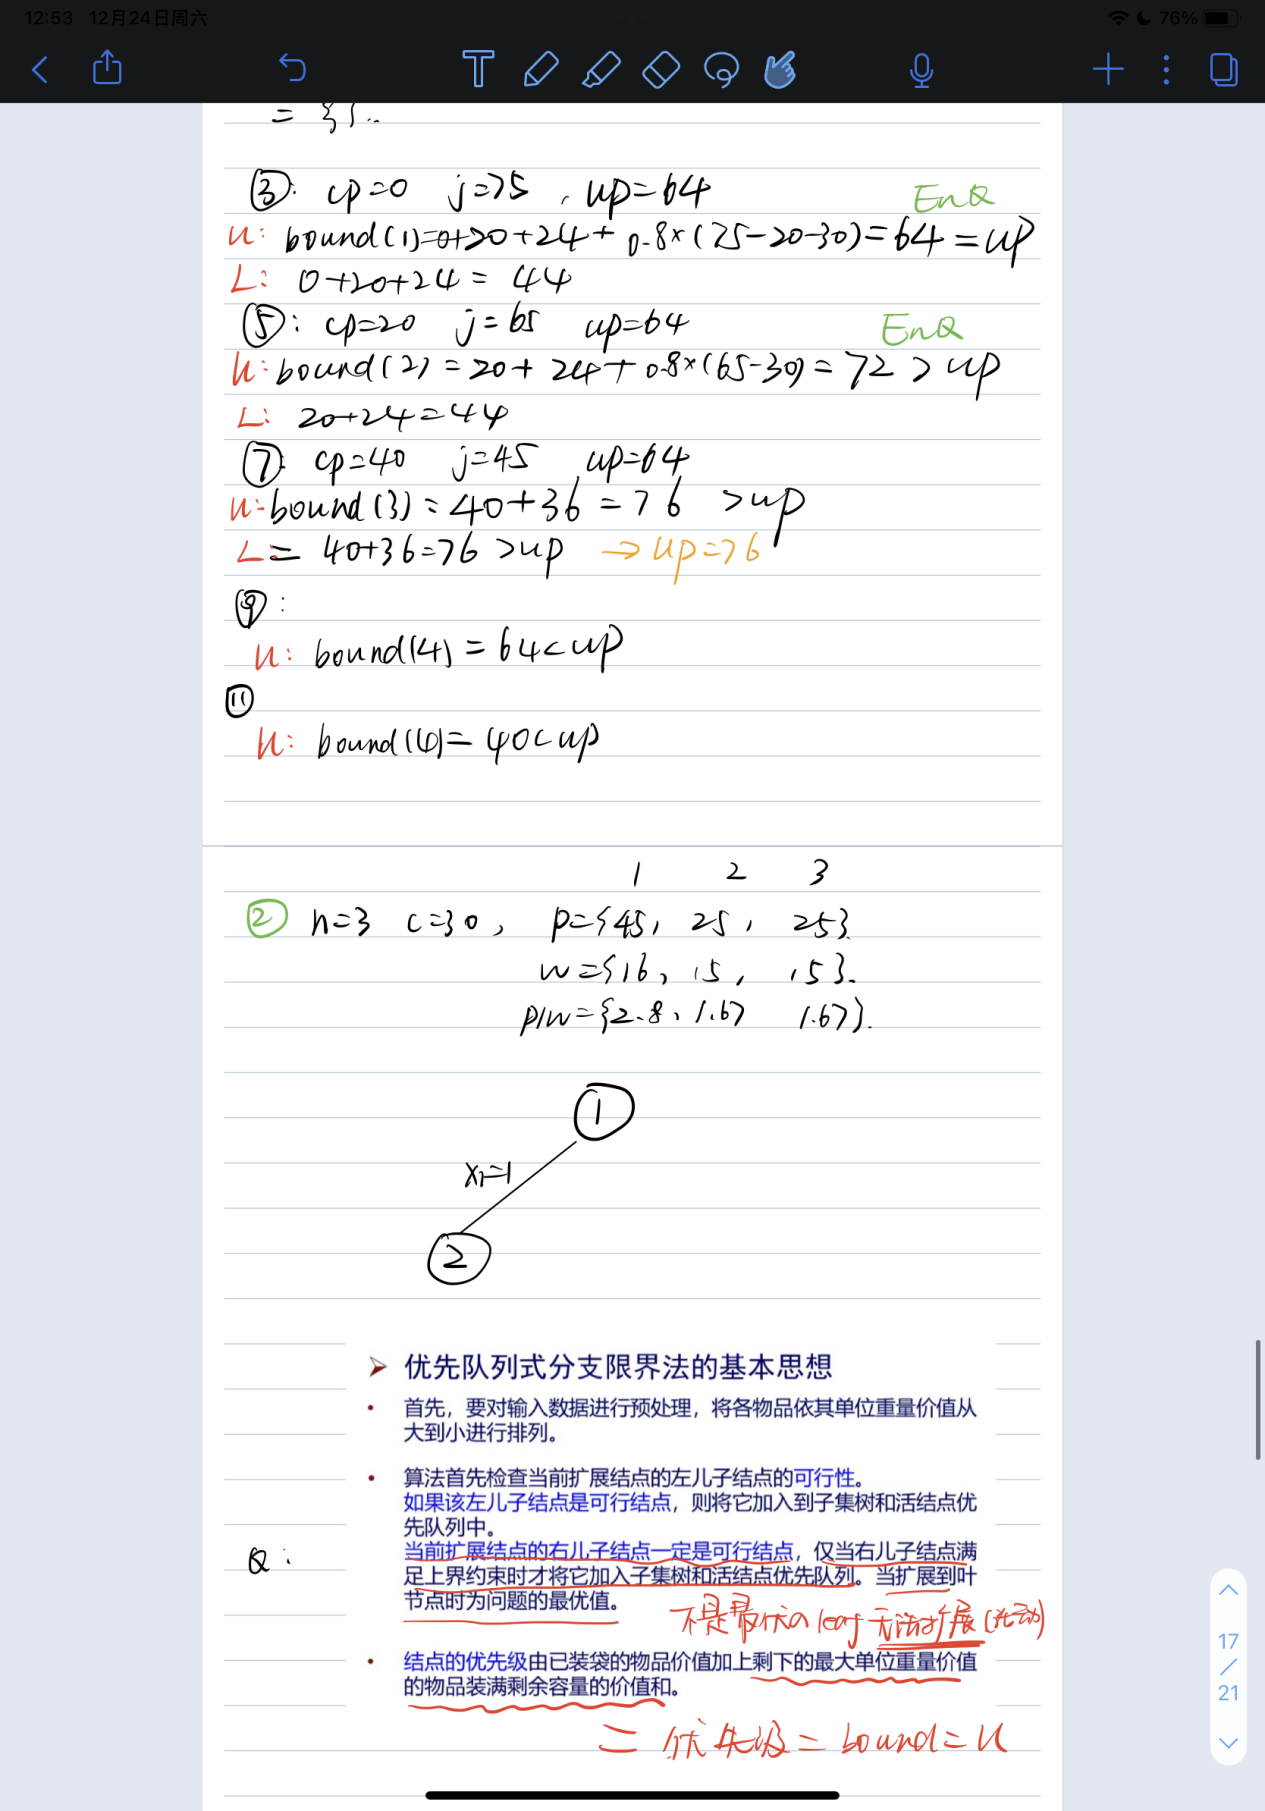 12:53 12月24日周六
76%
T
③: cp=0 j=75, up=64
EnQ
u: bound(1)=0+20+24+0.8×(75-20-30)=64=up
L: 0+20+24=44
⑤: cp=20 j=65 up=64
EnQ
u: bound(2)=20+24+0.8×(65-30)=72>up
L: 20+24=44
⑦: cp=40 j=45 up=64
u: bound(3)=40+36=76 >up
L= 40+36=76>up →up=76
⑨:
u: bound(4)=64<up
⑪
u: bound(4)=40<up
1 2 3
② n=3 c=30, p={45, 25, 25}.
w={16, 15, 15}.
p/w={2.8, 1.67 1.67}.
①
x₁=1
②
➢ 优先队列式分支限界法的基本思想
• 首先，要对输入数据进行预处理，将各物品依其单位重量价值从
大到小进行排列。
• 算法首先检查当前扩展结点的左儿子结点的可行性。
如果该左儿子结点是可行结点，则将它加入到子集树和活结点优
先队列中。
Q:
当前扩展结点的右儿子结点一定是可行结点，仅当右儿子结点满
足上界约束时才将它加入子集树和活结点优先队列。当扩展到叶
节点时为问题的最优值。
不是最优の leaf 无法扩展
• 结点的优先级由已装袋的物品价值加上剩下的最大单位重量价值
的物品装满剩余容量的价值和。
= 优先级=bound=u
17
/
21